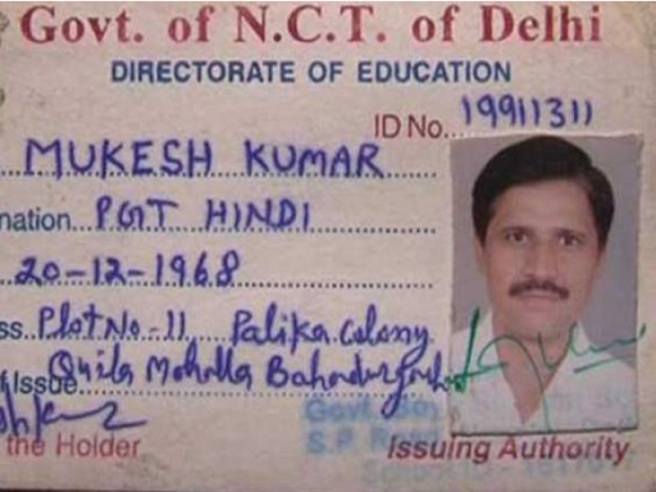 Govt. of N.C.T. of Delhi
DIRECTORATE OF EDUCATION
ID No... 19911311
MUKESH KUMAR
nation... PGT HINDI
20-12-1968
ss. Plot No-11 Palika Colony
f Issue Quila Mohalla Bahadurgarh
the Holder
Issuing Authority